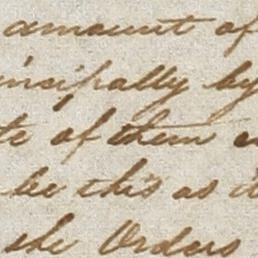 amount of
incipally by
te of them
be this as it
the Orders